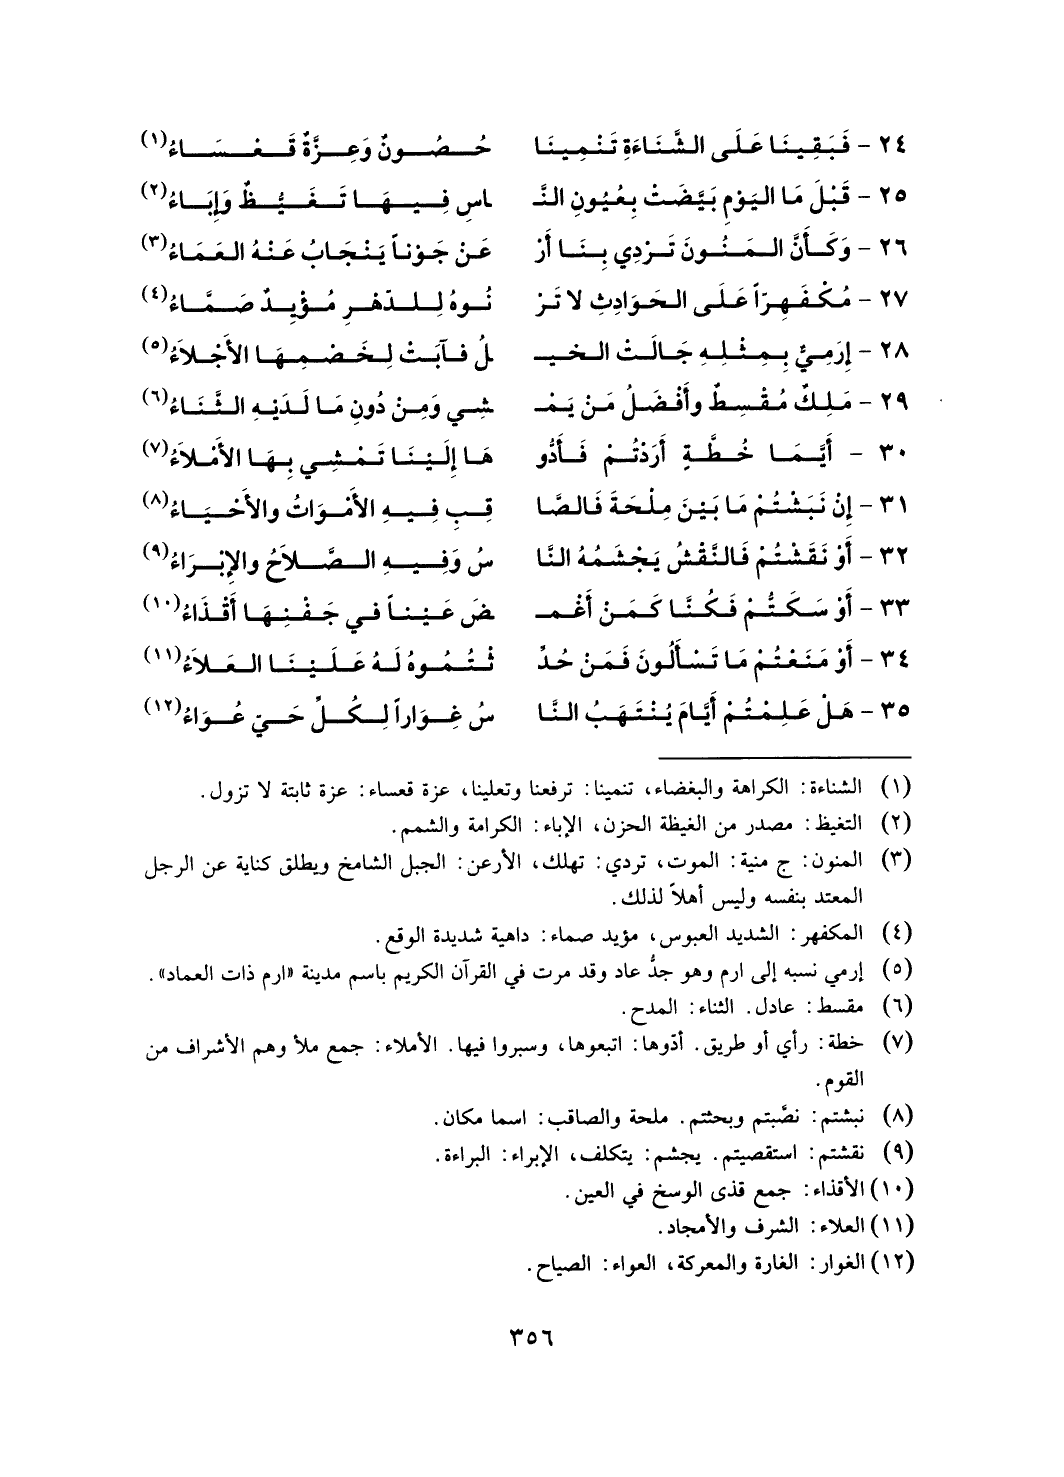 ٢٤ - فَبَقِينَا عَلَى الشَّنَاءَةِ تَنْمِينَا حُصُونٌ وَعِزَّةٌ قَعْسَاءُ(١)
٢٥ - قَبْلَ مَا اليَوْمِ بَيَّضَتْ بِعُيُونِ النَّـ ـاسِ فِيهَا تَغَيُّظٌ وَإِبَاءُ(٢)
٢٦ - وَكَأَنَّ المَنُونَ تَرْدِي بِنَا أَرْ عَنْ جَوْناً يَنْجَابُ عَنْهُ العَمَاءُ(٣)
٢٧ - مُكْفَهِرّاً عَلَى الحَوَادِثِ لا تَرْ تُوهُ لِلدَهْرِ مُؤْيِدٌ صَمَّاءُ(٤)
٢٨ - إِرَمِيٌّ بِمِثْلِهِ جَالَتْ الخَيـ ـلُ فَآبَتْ لِخَصْمِهَا الأَجْلاَءُ(٥)
٢٩ - مَلِكٌ مُقْسِطٌ وأَفْضَلُ مَن يَمْـ ـشِي وَمِنْ دُونِ مَا لَدَيْهِ الثَّنَاءُ(٦)
٣٠ - أَيَّمَا خُطَّةٍ أَرَدْتُمْ فَأَدُّو هَا إِلَيْنَا تَمْشِي بِهَا الأَمْلاَءُ(٧)
٣١ - إِنْ نَبَشْتُمْ مَا بَيْنَ مِلْحَةَ فَالصَّا قِبِ فِيهِ الأَمْوَاتُ والأَحْيَاءُ(٨)
٣٢ - أَوْ نَقَشْتُمْ فَالنَّقْشُ يَجْشَمُهُ النَّا سُ وَفِيهِ الصَّلاَحُ والإِبْرَاءُ(٩)
٣٣ - أَوْ سَكَتُّمْ فَكُنَّا كَمَنْ أَغْمَـ ـضَ عَيْناً في جَفْنِهَا أَقْذَاءُ(١٠)
٣٤ - أَوْ مَنَعْتُمْ مَا تَسْأَلُونَ فَمَن حُدِّ ثْتُمُوهُ لَهُ عَلَيْنَا العَلاَءُ(١١)
٣٥ - هَلْ عَلِمْتُمْ أَيَّامَ يُنْتَهَبُ النَّا سُ غِوَاراً لِكُلِّ حَيٍّ عُوَاءُ(١٢)
(١) الشناءة: الكراهة والبغضاء، تنمينا: ترفعنا وتعلينا، عزة قعساء: عزة ثابتة لا تزول.
(٢) التغيظ: مصدر من الغيظة الحزن، الإباء: الكرامة والشمم.
(٣) المنون: ج منية: الموت، تردي: تهلك، الأرعن: الجبل الشامخ ويطلق كناية عن الرجل
المعتد بنفسه وليس أهلاً لذلك.
(٤) المكفهر: الشديد العبوس، مؤيد صماء: داهية شديدة الوقع.
(٥) إرمي نسبه إلى ارم وهو جدُّ عاد وقد مرت في القرآن الكريم باسم مدينة «ارم ذات العماد».
(٦) مقسط: عادل. الثناء: المدح.
(٧) خطة: رأي أو طريق. أدّوها: اتبعوها، وسيروا فيها. الأملاء: جمع ملأ وهم الأشراف من
القوم.
(٨) نبشتم: نصَّبتم وبحثتم. ملحة والصاقب: اسما مكان.
(٩) نقشتم: استقصيتم. يجشم: يتكلف، الإبراء: البراءة.
(١٠) الأقذاء: جمع قذى الوسخ في العين.
(١١) العلاء: الشرف والأمجاد.
(١٢) الغوار: الغارة والمعركة، العواء: الصياح.
٣٥٦